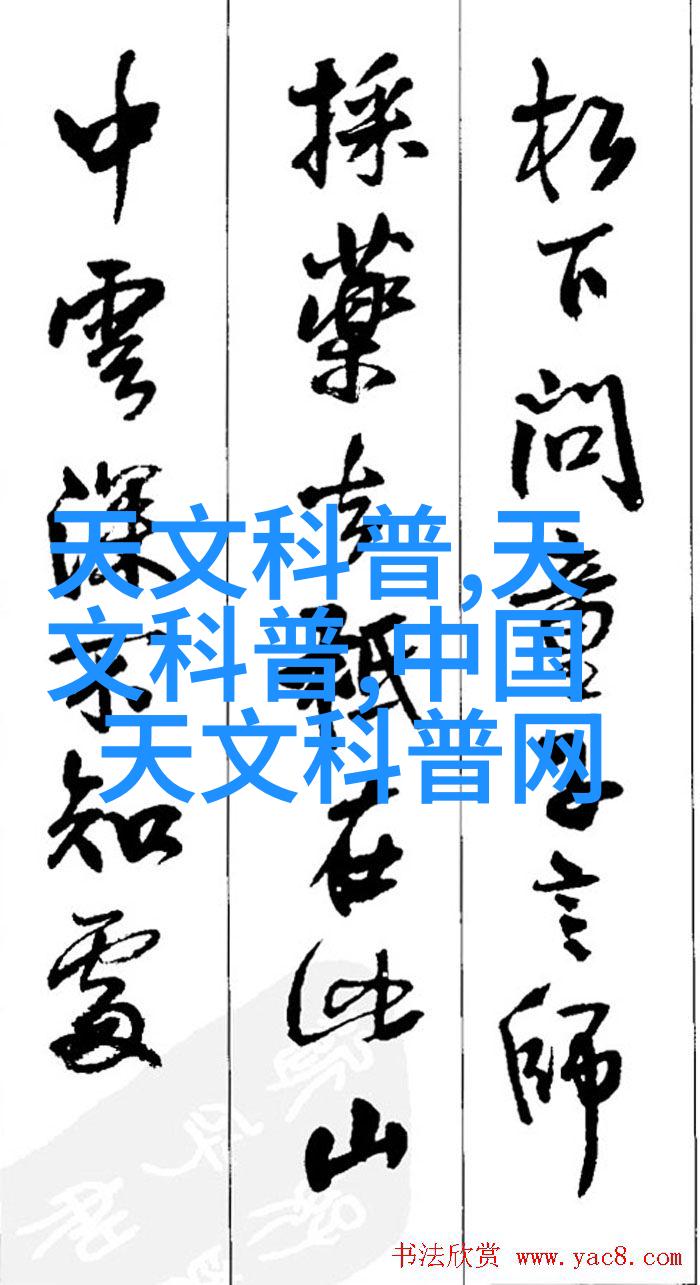 松下问童子言師
採藥去祗在此山
中雲深不知處
天文科普,天
文科普,中国
天文科普网
书法欣赏 www.yac8.com